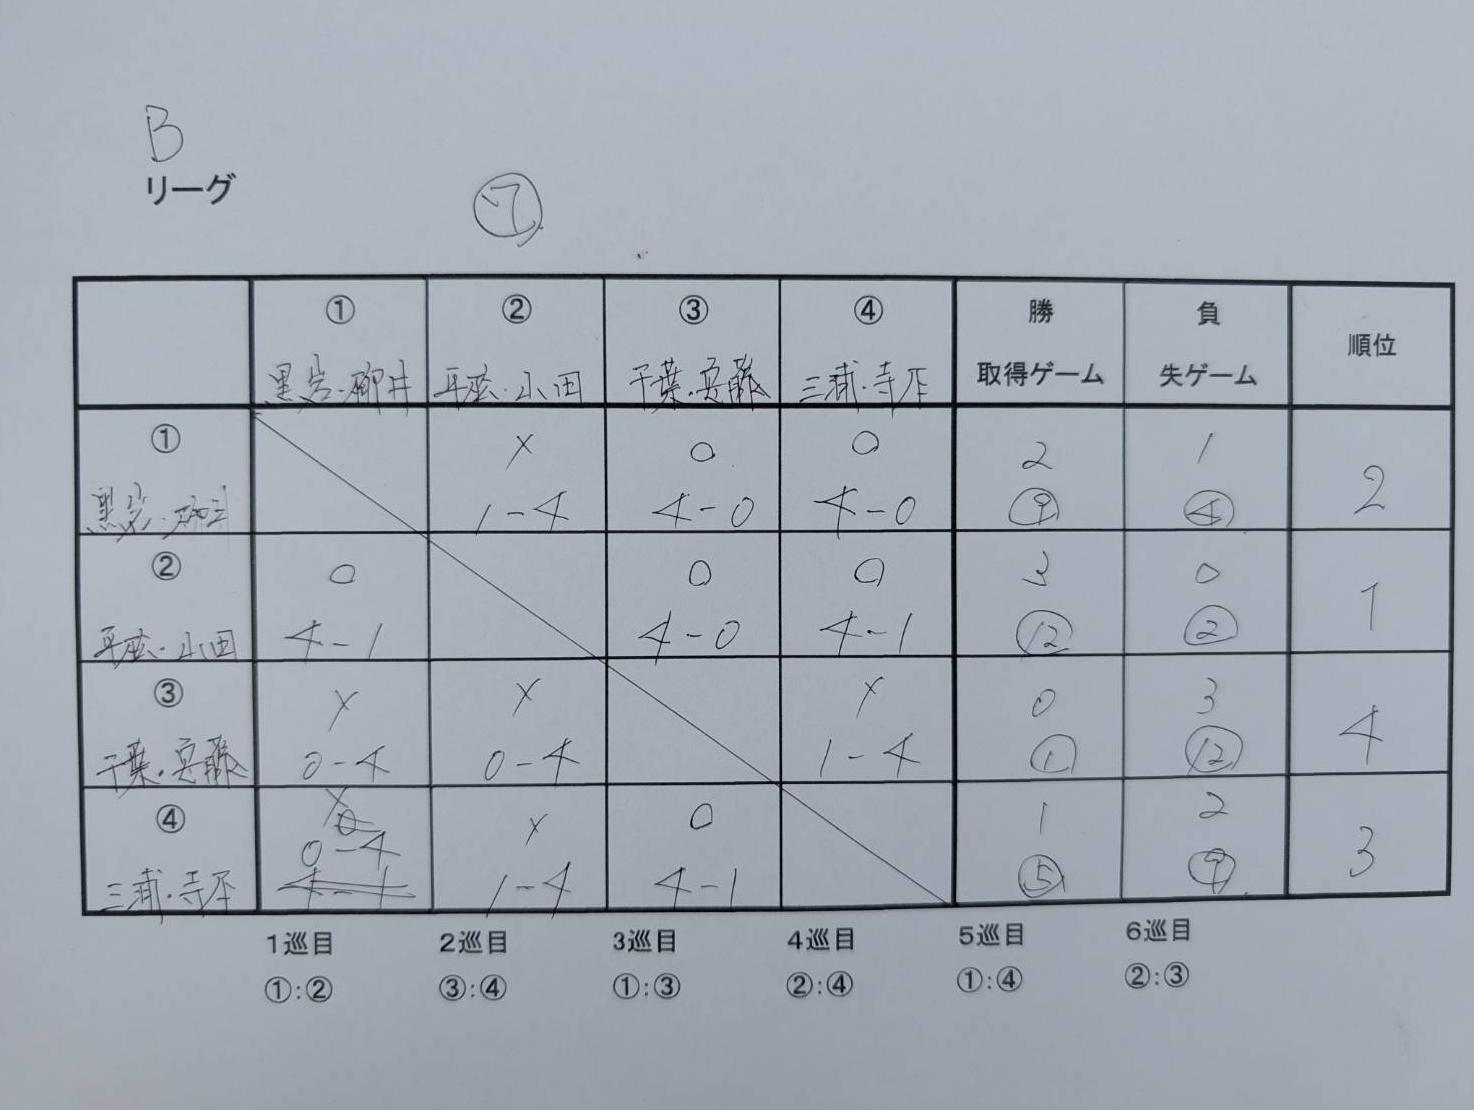 B
リーグ
⑦
① ② ③ ④ 勝 負 順位
黒岩・柳井 平岩・小田 千葉・斉藤 三浦・寺戸 取得ゲーム 失ゲーム
① × ○ ○ 2 1 2
黒岩・ 1-4 4-0 4-0 ⑨ ④
② ○ ○ ○ 3 0 1
・小田 4-1 4-0 4-1 ⑫ ②
③ × × × 0 3 4
千葉・ 0-4 0-4 1-4 ① ⑫
④ × × ○ 1 2 3
0-4
三浦・ 1-4 4-1 ⑤ ⑨
1巡目 2巡目 3巡目 4巡目 5巡目 6巡目
①:② ③:④ ①:③ ②:④ ①:④ ②:③